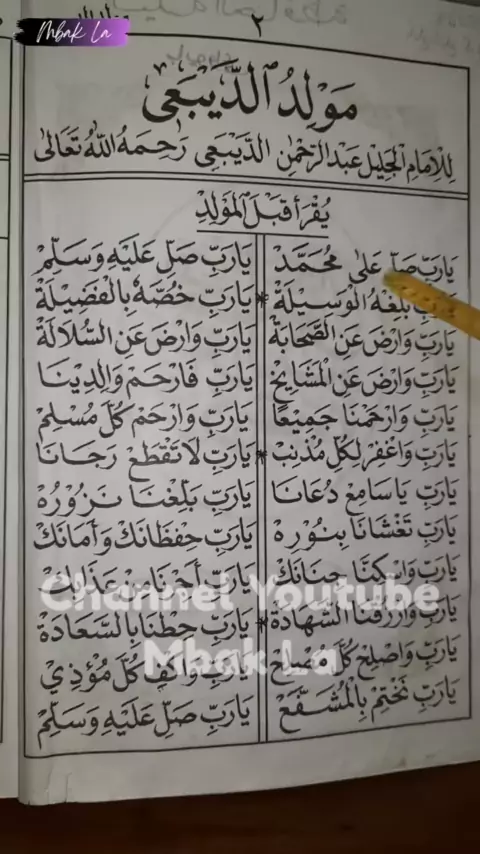 Mbak La
٢
مَوْلِدُ الدَّيْبَعِى
لِلْإِمَامِ الْجَلِيْلِ عَبْدِ الرَّحْمٰنِ الدَّيْبَعِي رَحِمَهُ اللّٰهُ تَعَالَى
يُقْرَأُ قَبْلَ الْمَوْلِدِ
يَارَبِّ صَلِّ عَلَى مُحَمَّدْ يَارَبِّ صَلِّ عَلَيْهِ وَسَلِّمْ
يَارَبِّ بَلِّغْهُ الْوَسِيْلَةْ * يَارَبِّ خُصَّهُ بِالْفَضِيْلَةْ
يَارَبِّ وَارْضَ عَنِ الصَّحَابَةْ يَارَبِّ وَارْضَ عَنِ السُّلَالَةْ
يَارَبِّ وَارْضَ عَنِ الْمَشَايِخْ يَارَبِّ فَارْحَمْ وَالِدِيْنَا
يَارَبِّ وَارْحَمْنَا جَمِيْعًا يَارَبِّ وَارْحَمْ كُلَّ مُسْلِمْ
يَارَبِّ وَاغْفِرْ لِكُلِّ مُذْنِبْ * يَارَبِّ لَاتَقْطَعْ رَجَانَا
يَارَبِّ يَاسَامِعْ دُعَانَا يَارَبِّ بَلِّغْنَا نَزُوْرُهْ
يَارَبِّ تَغْشَانَا بِنُوْرِهْ يَارَبِّ حِفْظَانَكْ وَأَمَانَكْ
يَارَبِّ وَاسْكِنَّا جِنَانَكْ يَارَبِّ أَجِرْنَا مِنْ عَذَابِكْ
Channel Youtube
يَارَبِّ وَارْزُقْنَا الشَّهَادَةْ * يَارَبِّ حِطْنَا بِالسَّعَادَةْ
Mbak La
يَارَبِّ وَاصْلِحْ كُلَّ مُصْلِحْ يَارَبِّ وَاكْفِ كُلَّ مُؤْذِيْ
يَارَبِّ نَخْتِمْ بِالْمُشَفَّعْ يَارَبِّ صَلِّ عَلَيْهِ وَسَلِّمْ